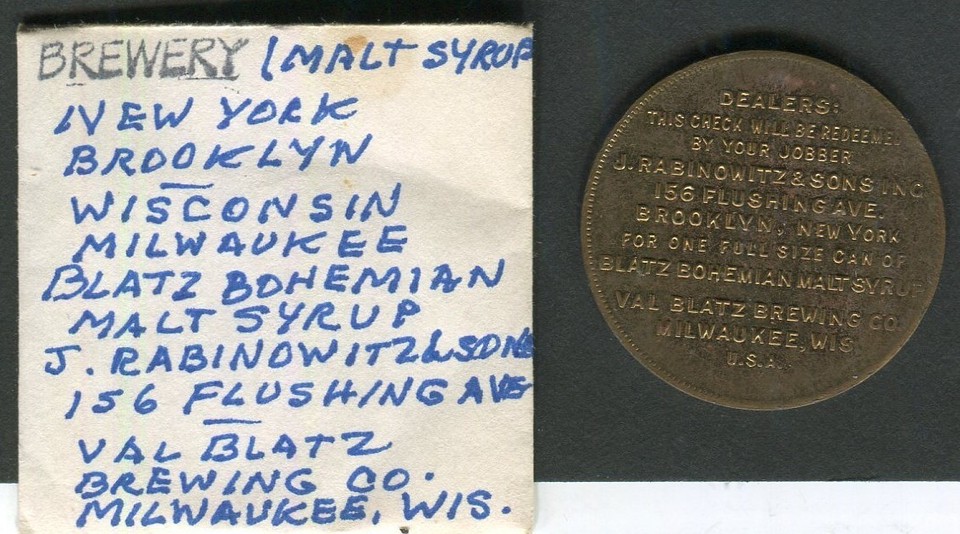 BREWERY / MALT SYRUP
NEW YORK
BROOKLYN
WISCONSIN
MILWAUKEE
BLATZ BOHEMIAN
MALT SYRUP
J. RABINOWITZ & SONS
156 FLUSHING AVE
VAL BLATZ
BREWING CO.
MILWAUKEE, WIS.
DEALERS:
THIS CHECK WILL BE REDEEMED
BY YOUR JOBBER
J. RABINOWITZ & SONS INC
156 FLUSHING AVE.
BROOKLYN, NEW YORK
FOR ONE FULL SIZE CAN OF
BLATZ BOHEMIAN MALT SYRUP
VAL BLATZ BREWING CO
MILWAUKEE, WIS
U.S.A.